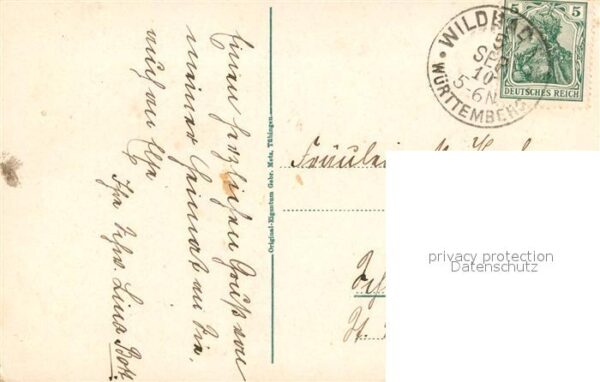 Einen herzlichen Gruß von
meiner Heimat an Sie,
auch an Else
Ihre Schw. Lina Bott
Original-Eigentum Gebr. Metz, Tübingen
WILDBAD
5
SEP
10
5-6N
WÜRTTEMBERG
5 5
DEUTSCHES REICH
Fräulein
privacy protection
Datenschutz